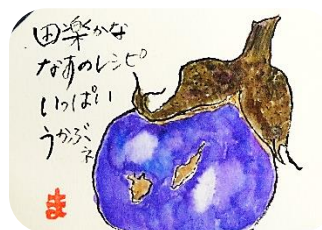 田楽かな
なすのレシピ
いっぱい
うかぶネ
ま